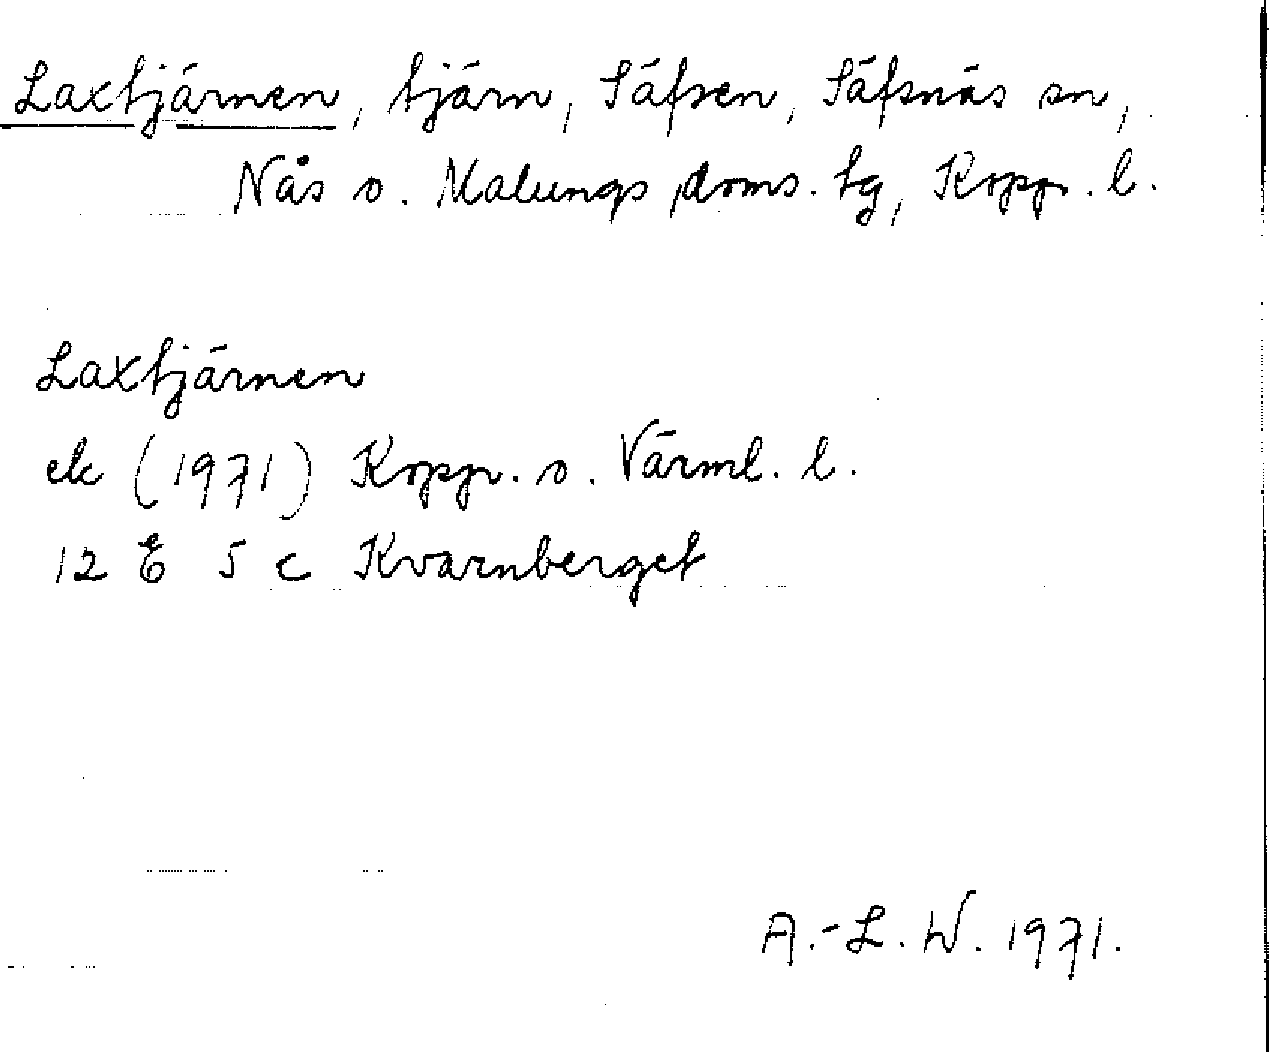 Laxtjärnen, tjärn, Säfsen, Säfsnäs sn,
Nås o. Malungs doms. tg, Kopp. l.
Laxtjärnen
ek (1971) Kopp. o. Värml. l.
12 E 5 c Kvarnberget
A.-L. W. 1971.